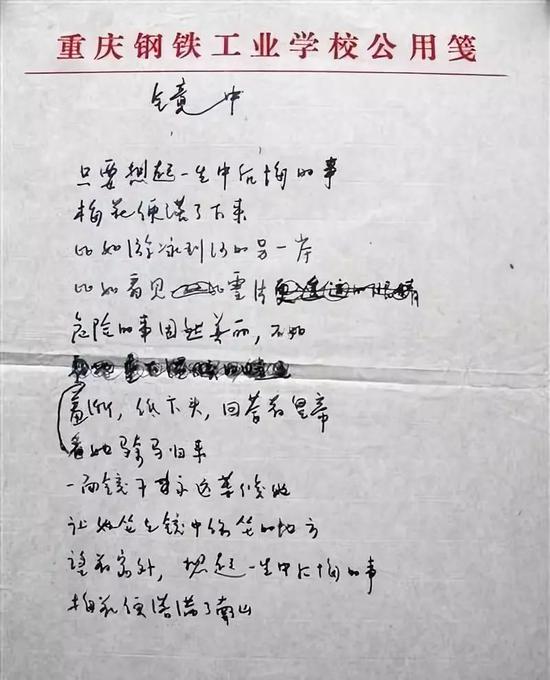 重庆钢铁工业学校公用笺
镜中
只要想起一生中后悔的事
梅花便落了下来
比如游泳到河的另一岸
比如看见比雪片更遥远的眼睛
危险的事固然美丽，不如
羞惭，低下头，回答着皇帝
看她骑马归来
一面镜子永远等候她
让她坐在镜中常坐的地方
望着窗外，想起一生中后悔的事
梅花便落满了南山